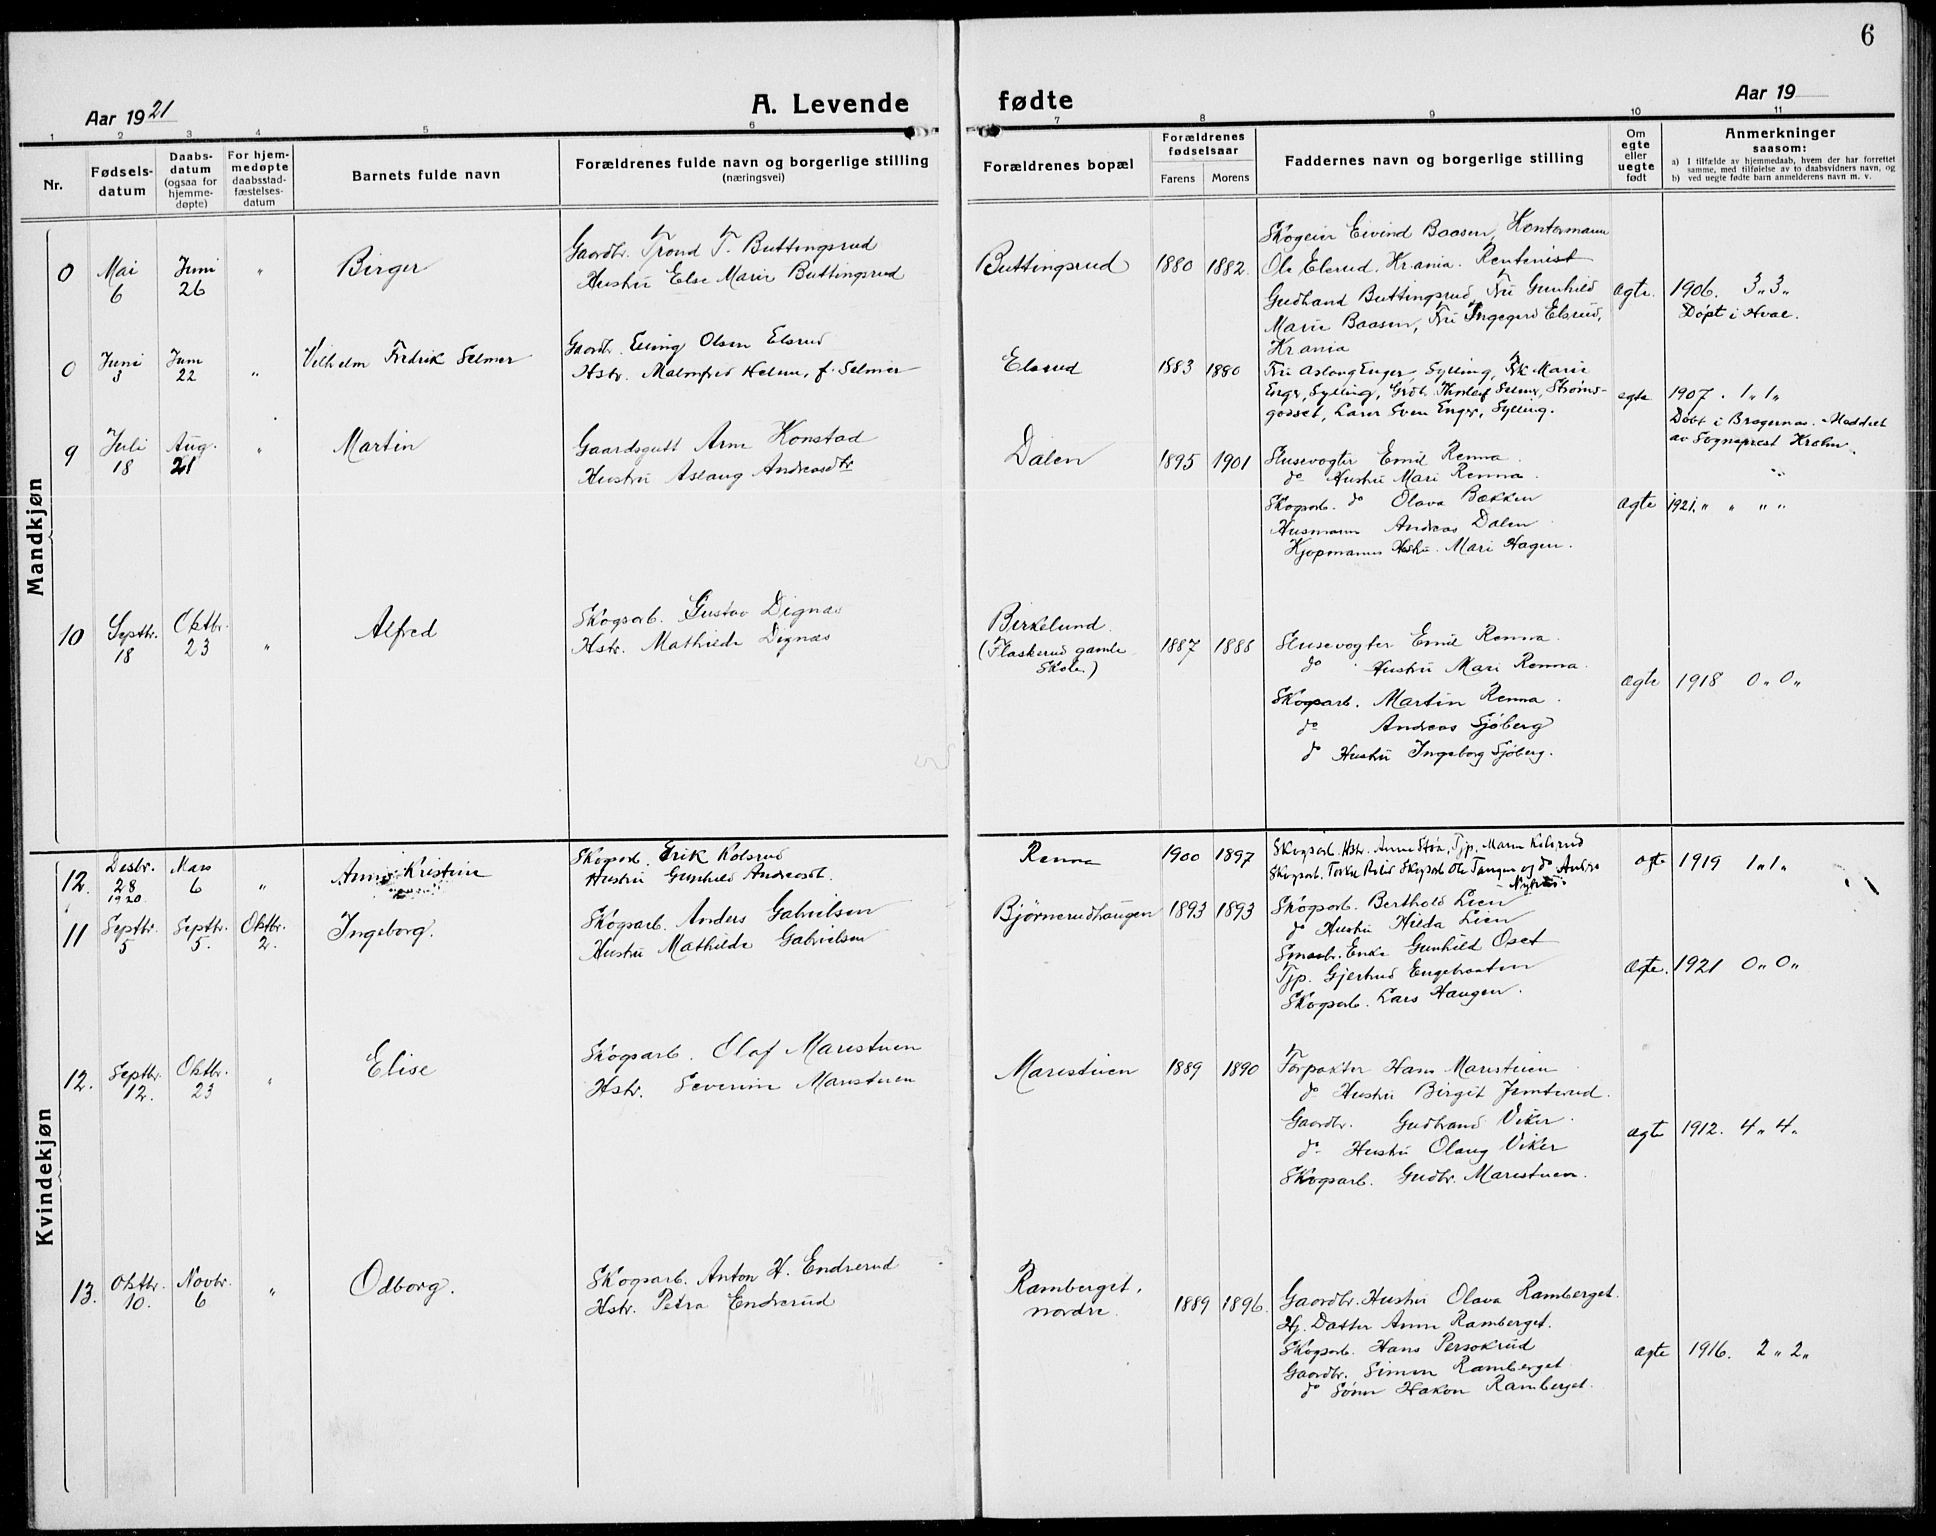 6
Aar 1921
A. Levende
fødte
Aar 19
1 2 3 4 5 6 7 8 9 10 11
Nr.
Fødsels-
datum
Daabs-
datum
(ogsaa for
hjemme-
døpte)
For hjem-
medøpte
daabsstad-
fæstelses-
datum
Barnets fulde navn
Forældrenes fulde navn og borgerlige stilling
(næringsvei)
Forældrenes bopæl
Forældrenes
fødselsaar
Farens Morens
Faddernes navn og borgerlige stilling
Om
egte
eller
uegte
født
Anmerkninger
saasom:
a) I tilfælde av hjemmedaab, hvem der har forrettet
samme, med tilføielse av to daabsvidners navn, og
b) ved uegte fødte barn anmelderens navn m. v.
Mandkjøn
0 Mai 6 Juni 26 " Birger
Gaardbr. Trond T. Buttingsrud
Hustru Else Marie Buttingsrud
Buttingsrud 1880 1882
Skogeier Eivind Baasen, Kontormann
Ole Elsrud, Krania. Rentenist
Gudbrand Buttingsrud, Fru Gunhild
Marie Baasen, Fru Ingegerd Elsrud,
Krania
ægte. 1906. 3 " 3 "
Døpt i Hval.
0 Juni 3 Juni 22 " Vilhelm Fredrik Selmer
Gaardbr. Elling Olsen Elsrud
Hstr. Malmfred Helene, f. Selmer
Elsrud 1883 1880
Fru Aslaug Enger, Sylling, Frk Marie
Enger, Sylling, Grdbr. Thorleif Selmer, Strøms-
godset, Lærer Sven Enger, Sylling.
egte 1907. 1 " 1 "
Døbt i Bragernæs. Meddelt
av Sogneprest Krohn.
9 Juli 18 Aug. 21 " Martin
Gaardsgutt Arne Konstad
Hustru Aslaug Andreasdtr
Dalen 1895 1901
Slusevogter Emil Renna
do Hustru Mari Renna.
Skogsarb. do Olava Bækken
Husmann Andreas Dalen
Kjøpmanns Hustru. Mari Hagen.
ægte 1921. " " " "
10 Septbr. 18 Oktbr. 23 " Alfred
Skogsarb. Gustav Dignæs
Hstr. Mathilde Dignæs
Birkelund.
(Flaskerud gamle
Skole.)
1887 1888
Slusevogter Emil Renna.
do Hustru Mari Renna.
Skogsarb. Martin Renna.
do Andreas Sjøberg
do Hustru Ingeborg Sjøberg.
ægte 1918 0 " 0 "
Kvindekjøn
12. Desbr. 28 1920. Mars 6 " Anne Kristine
Skogsarb. Erik Kolsrud
Hustru Gunhild Andreasdt.
Renna 1900 1897
Skogsarb. Hstr. Anne Støa, Tjp. Maren Kolsrud
Skogsarb. Ole Tangen og do
ægte 1919 1 " 1 "
11 Septbr. 5 Septbr. 5. Oktbr. 2. Ingeborg.
Skogsarb. Anders Gabrielsen
Hustru Mathilde Gabrielsen
Bjørnerudhaugen 1893 1893
Skogsarb. Berthold Lien
do Hustru Hilda Lien
Smaabr. Enke Gunhild Oset
Tjp. Gjertrud Engebraaten
Skogsarb. Lars Haugen.
ægte. 1921 0 " 0 "
12. Septbr. 12. Oktbr. 23 " Elise
Skogsarb. Olaf Marestuen
Hstr. Severine Marestuen
Marestuen 1889 1890
Forpakter Hans Marestuen
do Hustru Birgit Jemterud.
Gaardbr. Gudbrand Viker.
do Hustru Olaug Viker
Skogsarb. Gudbr. Marestuen.
ægte 1912. 4 " 4 "
13. Oktbr. 10. Novbr. 6 " Odborg.
Skogsarb. Anton H. Endrerud
Hstr. Petra Endrerud
Ramberget,
nordre.
1889 1896.
Gaardbr. Hustru Olava Ramberget.
Hj. Datter Anne Ramberget.
Skogsarb. Hans Persokrud
Gaardbr. Simen Ramberget
do Sønn Hakon Ramberget.
ægte 1916. 2 " 2 "